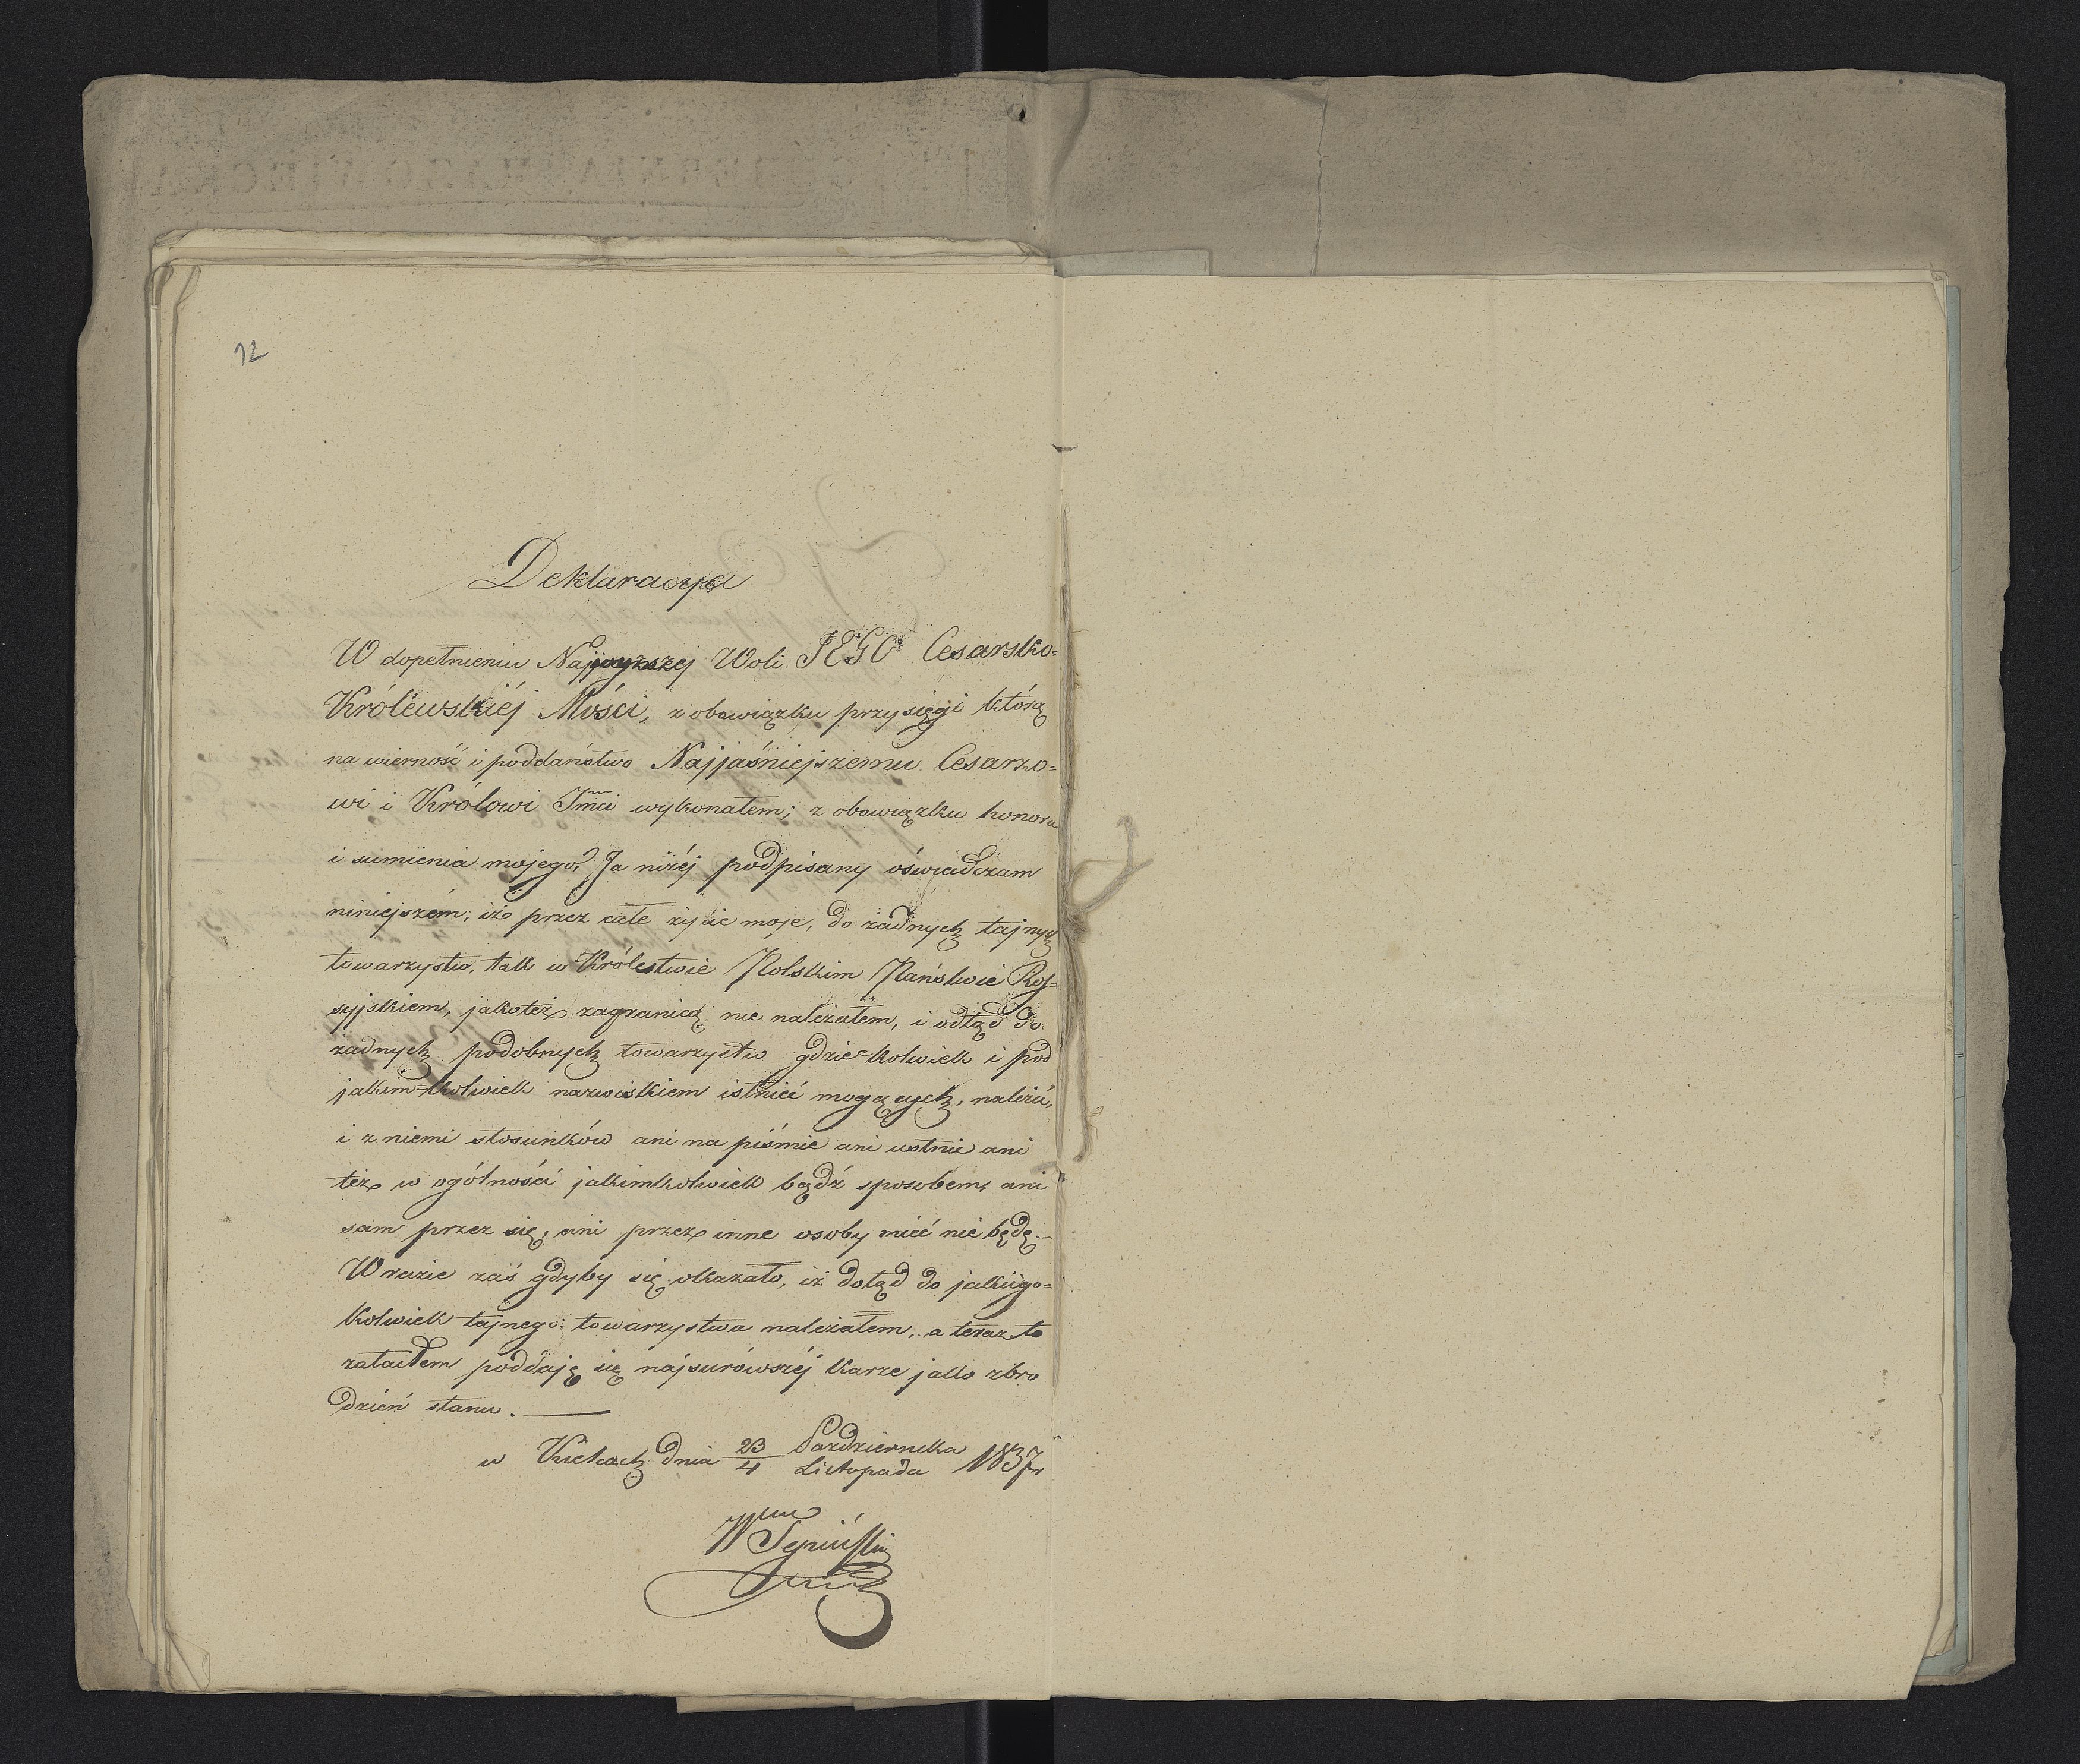 12
Deklaracya
W dopełnieniu Najwyższej Woli JEGO Cesarsko=
Królewskiéj Mości, z obowiązku przysięgi którą
na wierność i poddaństwo Najjaśniejszemu Cesarzo=
wi i Królowi Jmci wykonałem; z obowiązku honoru
i sumienia mojego, Ja niżéj podpisany oświadczam
niniejszém, iż przez całe życie moje, do żadnych tajnych
towarzystw, tak w Królestwie Polskim Państwie Ros=
syjskiem, jakoteż zagranicą nie należałem, i odtąd do
żadnych podobnych towarzystw gdzie=kolwiek i pod
jakim=kolwiek nazwiskiem istnieć mogących, należeć,
i z niemi stosunków ani na piśmie ani ustnie ani
też w ogólności jakimkolwiek bądź sposobem, ani
sam przez się, ani przez inne osoby mieć nie będę.—
W razie zaś gdyby się okazało, iż dotąd do jakiego=
kolwiek tajnego towarzystwa należałem, a teraz to
zataiłem poddaję się najsurówszéj karze jako zbro
dzień stanu. —
w Kielcach dnia 23/4 Października/Listopada 1837r